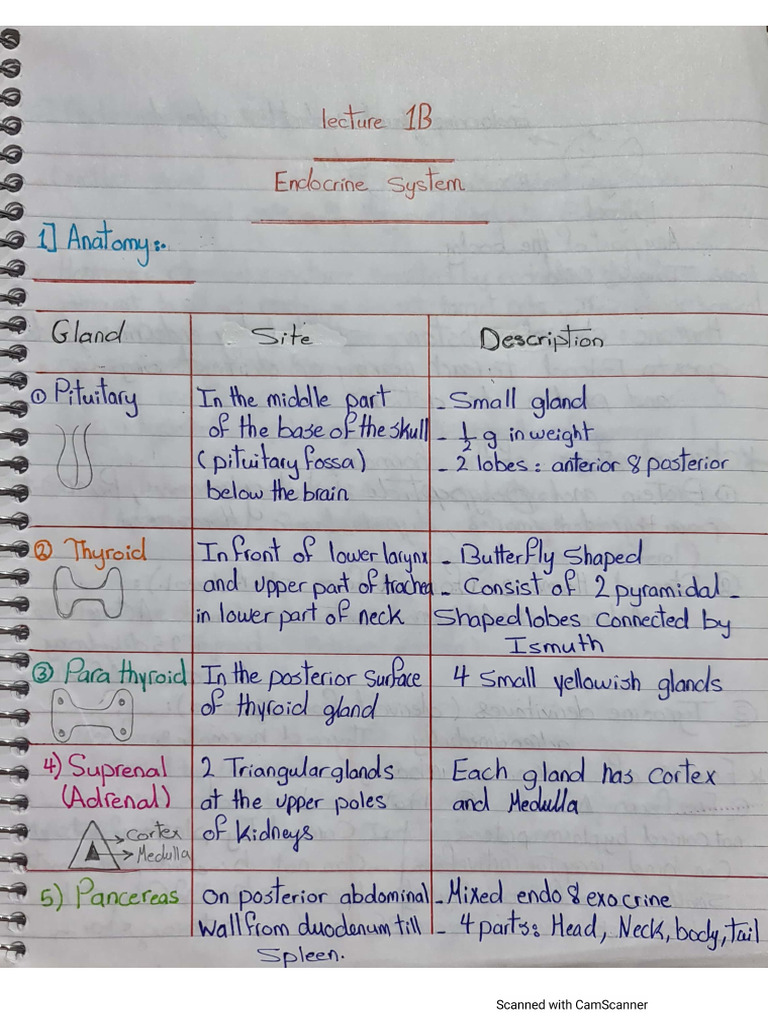 lecture 1B
Endocrine System
1] Anatomy:.
Gland Site Description
① Pituitary
In the middle part
of the base of the skull
(pituitary fossa)
below the brain
- Small gland
- 1/2 g in weight
- 2 lobes : anterior & posterior
② Thyroid
In front of lower larynx
and upper part of trachea
in lower part of neck
- Butterfly Shaped
- Consist of 2 pyramidal -
Shaped lobes connected by
Ismuth
③ Para thyroid
In the posterior surface
of thyroid gland
4 Small yellowish glands
4) Suprenal
(Adrenal)
Cortex
Medulla
2 Triangular glands
at the upper poles
of kidneys
Each gland has cortex
and Medulla
5) Pancereas
on posterior abdominal
wall from duodenum till
Spleen.
- Mixed endo & exocrine
- 4 parts: Head, Neck, body, tail
Scanned with CamScanner